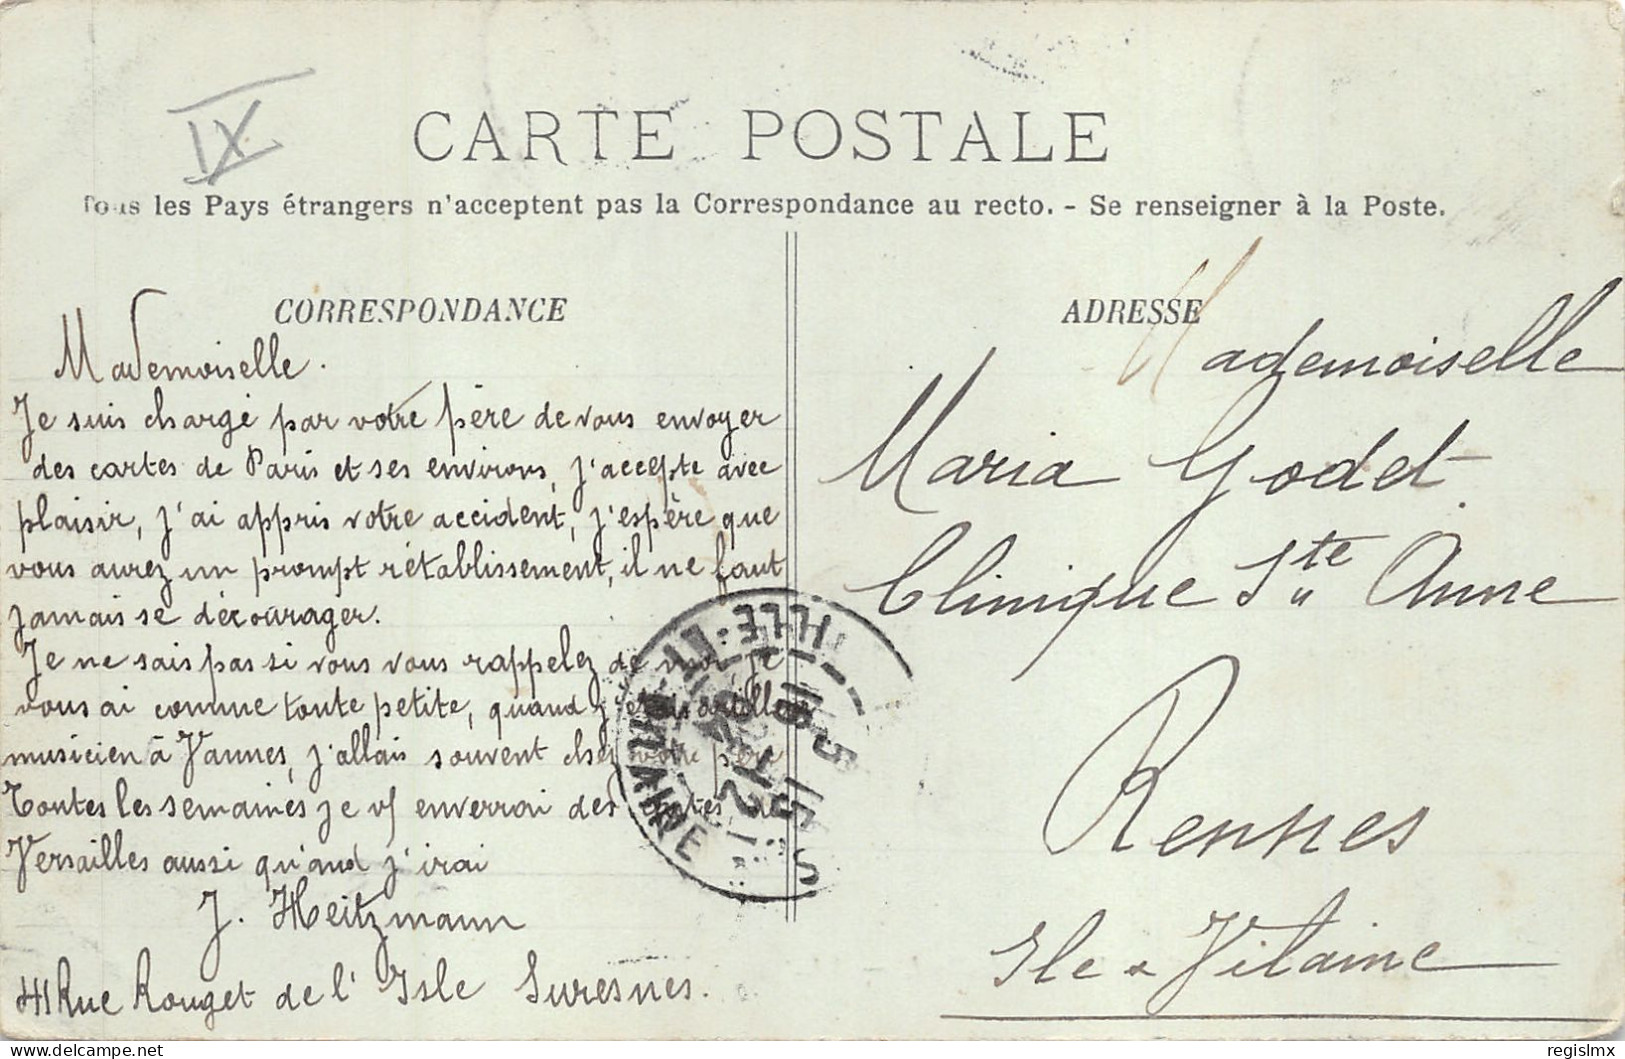 IX
CARTE POSTALE
Tous les Pays étrangers n'acceptent pas la Correspondance au recto. - Se renseigner à la Poste.
CORRESPONDANCE
Mademoiselle.
Je suis chargé par votre père de vous envoyer
des cartes de Paris et ses environs, j'accepte avec
plaisir, j'ai appris votre accident, j'espère que
vous aurez un prompt rétablissement, il ne faut
jamais se décourager.
Je ne sais pas si vous vous rappelez de moi je
vous ai connue toute petite, quand j'étais artilleur
musicien à Vannes, j'allais souvent chez votre père
Toutes les semaines je vs enverrai des cartes de
Versailles aussi qu'and j'irai
J. Heitzmann
41 Rue Rouget de l'Isle Suresnes.
ADRESSE
Mademoiselle
Maria Godet
Clinique Ste Anne
Rennes
Ile & Vilaine
ILLE-ET-VILAINE
16 15
5 - 12
regislmx